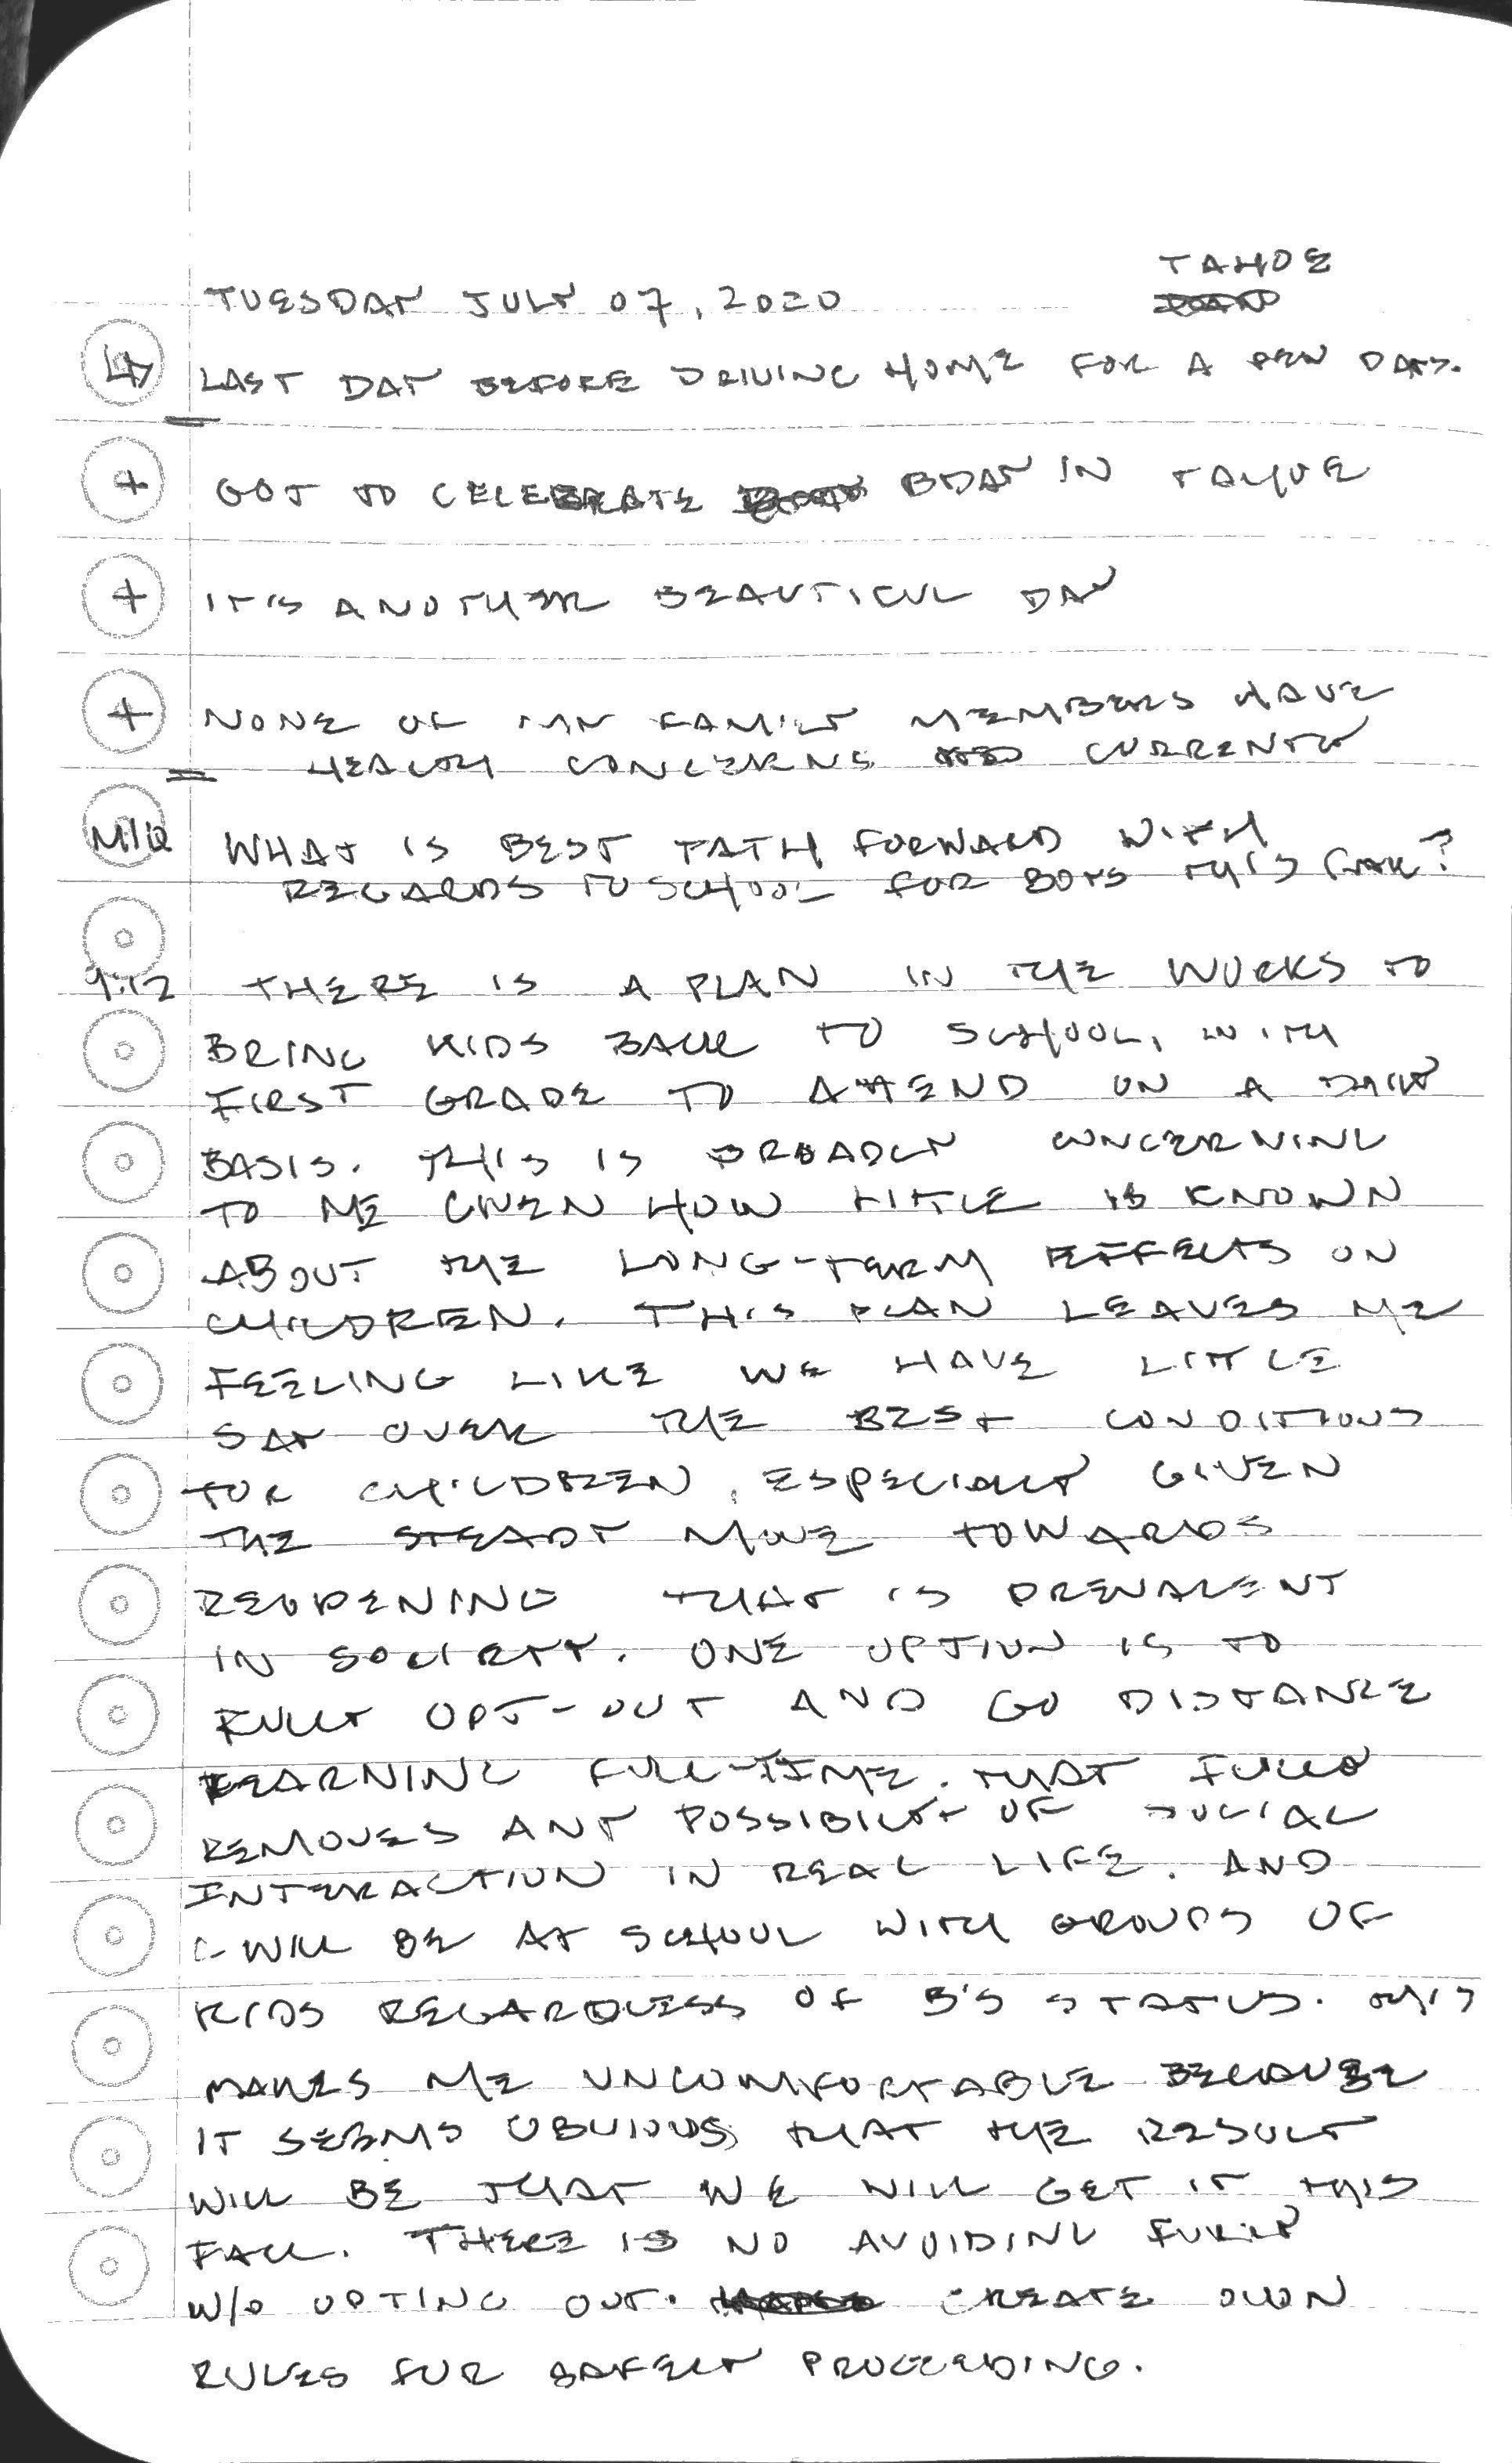 TAHOE
TUESDAY JULY 07, 2020
LD LAST DAY BEFORE DRIVING HOME FOR A FEW DAYS.
+ GOT TO CELEBRATE BDAY IN TAHOE
+ IT'S ANOTHER BEAUTIFUL DAY
+ NONE OF MY FAMILY MEMBERS HAVE
HEALTH CONCERNS CURRENTLY
M/Q WHAT IS BEST PATH FORWARD WITH
REGARDS TO SCHOOL FOR BOYS THIS YEAR?
9:12 THERE IS A PLAN IN THE WORKS TO
BRING KIDS BACK TO SCHOOL, WITH
FIRST GRADE TO ATTEND ON A DAILY
BASIS. THIS IS BROADLY CONCERNING
TO ME GIVEN HOW LITTLE IS KNOWN
ABOUT THE LONG-TERM EFFECTS ON
CHILDREN. THIS PLAN LEAVES ME
FEELING LIKE WE HAVE LITTLE
SAY OVER THE BEST CONDITIONS
FOR CHILDREN, ESPECIALLY GIVEN
THE STEADY MOVE TOWARDS
REOPENING THAT IS PREVALENT
IN SOCIETY. ONE OPTION IS TO
FULLY OPT-OUT AND GO DISTANCE
LEARNING FULL-TIME. THAT FULLY
REMOVES ANY POSSIBILITY OF SOCIAL
INTERACTION IN REAL LIFE. AND
C WILL BE AT SCHOOL WITH GROUPS OF
KIDS REGARDLESS OF B'S STATUS. THIS
MAKES ME UNCOMFORTABLE BECAUSE
IT SEEMS OBVIOUS THAT THE RESULT
WILL BE THAT WE WILL GET IT THIS
FALL. THERE IS NO AVOIDING FULLY
W/O OPTING OUT. CREATE OWN
RULES FOR SAFELY PROCEEDING.